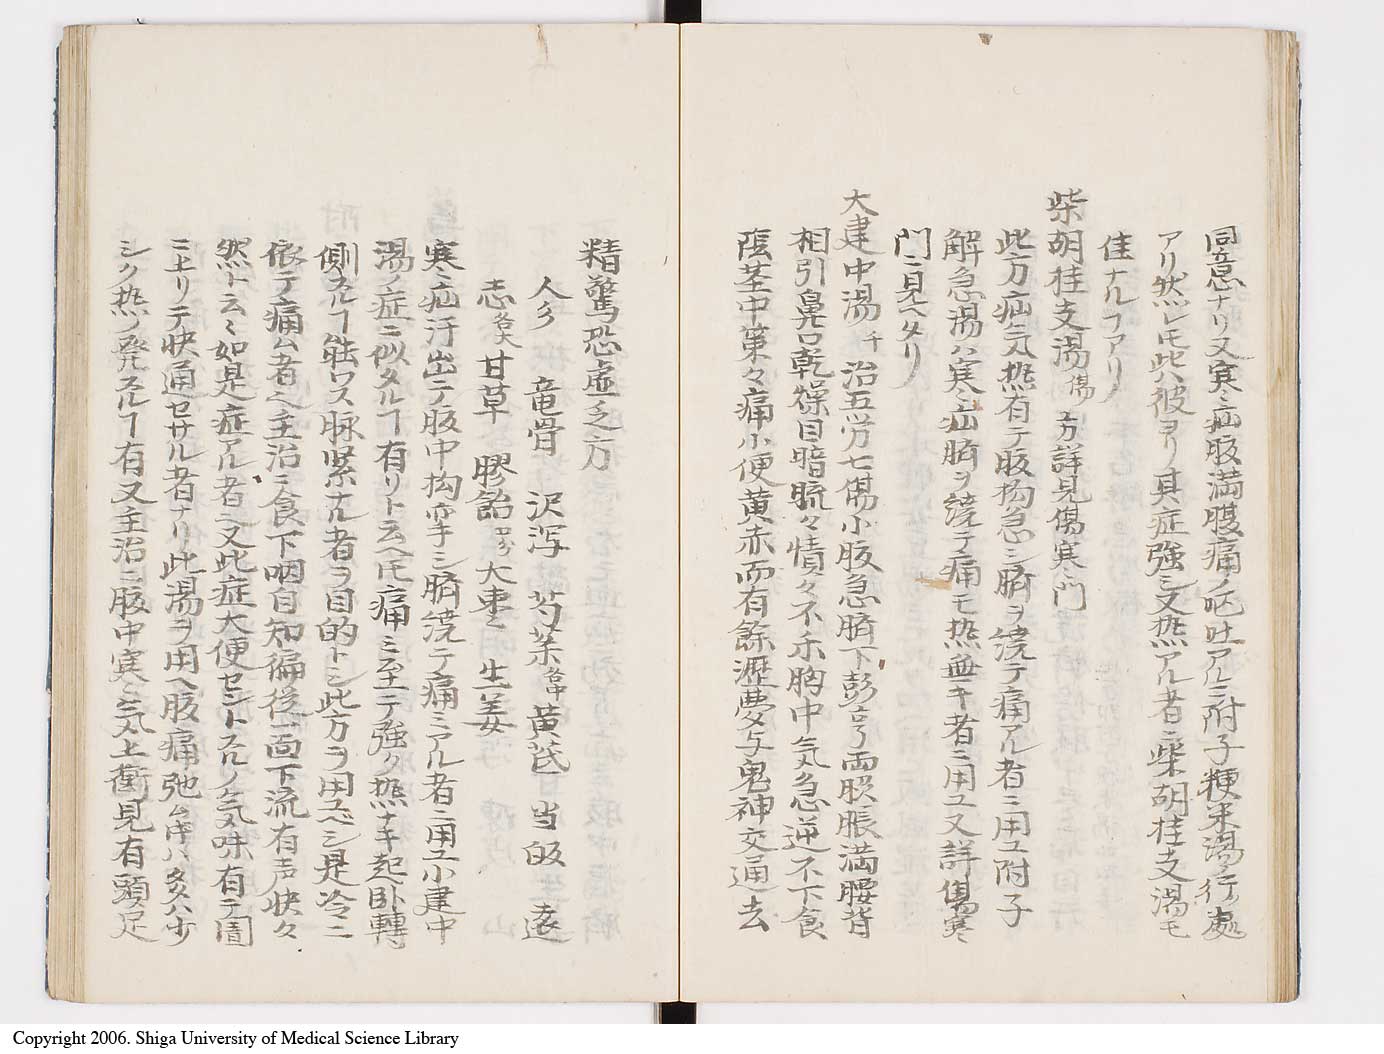 同意ナリ又寒疝腹満腹痛ノ嘔吐アルニ附子粳米湯ノ行ク處
アリ然レ𪜈此ハ彼ヨリ其症強シ又熱アル者ニ柴胡桂支湯モ
佳ナルヿアリ
柴胡桂支湯 傷 方詳見傷寒門
此方疝気熱有テ腹拘急シ臍ヲ繞テ痛アル者ニ用ユ附子
解急湯ハ寒疝臍ヲ繞テ痛モ熱無キ者ニ用ユ又詳傷寒
門ニ見ヘタリ
大建中湯 千 治五労七傷小腹急臍下彭亨両脇脹満腰背
相引鼻口乾燥目暗䀮々憒々不楽胸中気急逆不下食
陰茎中策々痛小便黄赤而有餘瀝夢与鬼神交通去
精驚恐虚乏方
人参 竜骨 沢瀉 芍薬 各中 黄芪 当皈 遠
志 各大 甘草 膠飴 大棗 生姜
寒疝汗出テ腹中拘挛シ臍繞テ痛ミアル者ニ用ユ小建中
湯ノ症ニ似タルヿ有リト云ヘ𪜈痛ミ至テ強ク熱ナキ起臥轉
側スルヿ能ワス脉緊ナル者ヲ目的トシ此方ヲ用ユベシ是冷ニ
依テ痛ム者ヘ主治ニ食下咽自知偏後一面下流有声快々
然ト云々如是症アル者ヘ又此症大便セントスルノ気味有テ圊
ニ上リテ快通セサル者ナリ此湯ヲ用ヘ腹痛弛ム𪜈ハ多ハ少
シク熱ノ発スルヿ有又主治ニ腹中寒気上衝見有頭足
Copyright 2006. Shiga University of Medical Science Library